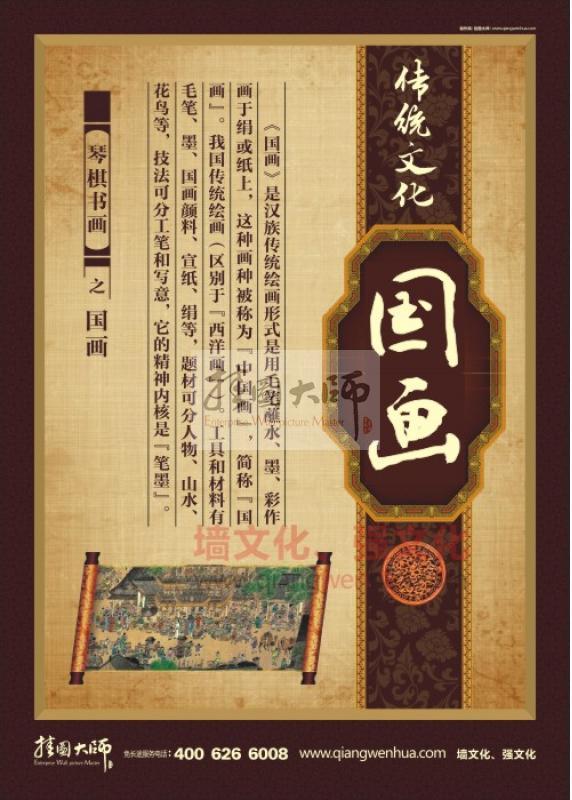 传统文化
国画
《国画》是汉族传统绘画形式是用毛笔蘸水、墨、彩作
画于绢或纸上，这种画种被称为『中国画』，简称『国
画』。我国传统绘画（区别于『西洋画』）。工具和材料有
毛笔、墨、国画颜料、宣纸、绢等，题材可分人物、山水、
花鸟等，技法可分工笔和写意，它的精神内核是『笔墨』。
琴棋书画 之 国画
挂图大师
Enterprise Wall picture Master
墙文化、强文化
www.qiangwen
挂图大师
Enterprise Wall picture Master
免长途服务电话：400 626 6008 www.qiangwenhua.com 墙文化、强文化